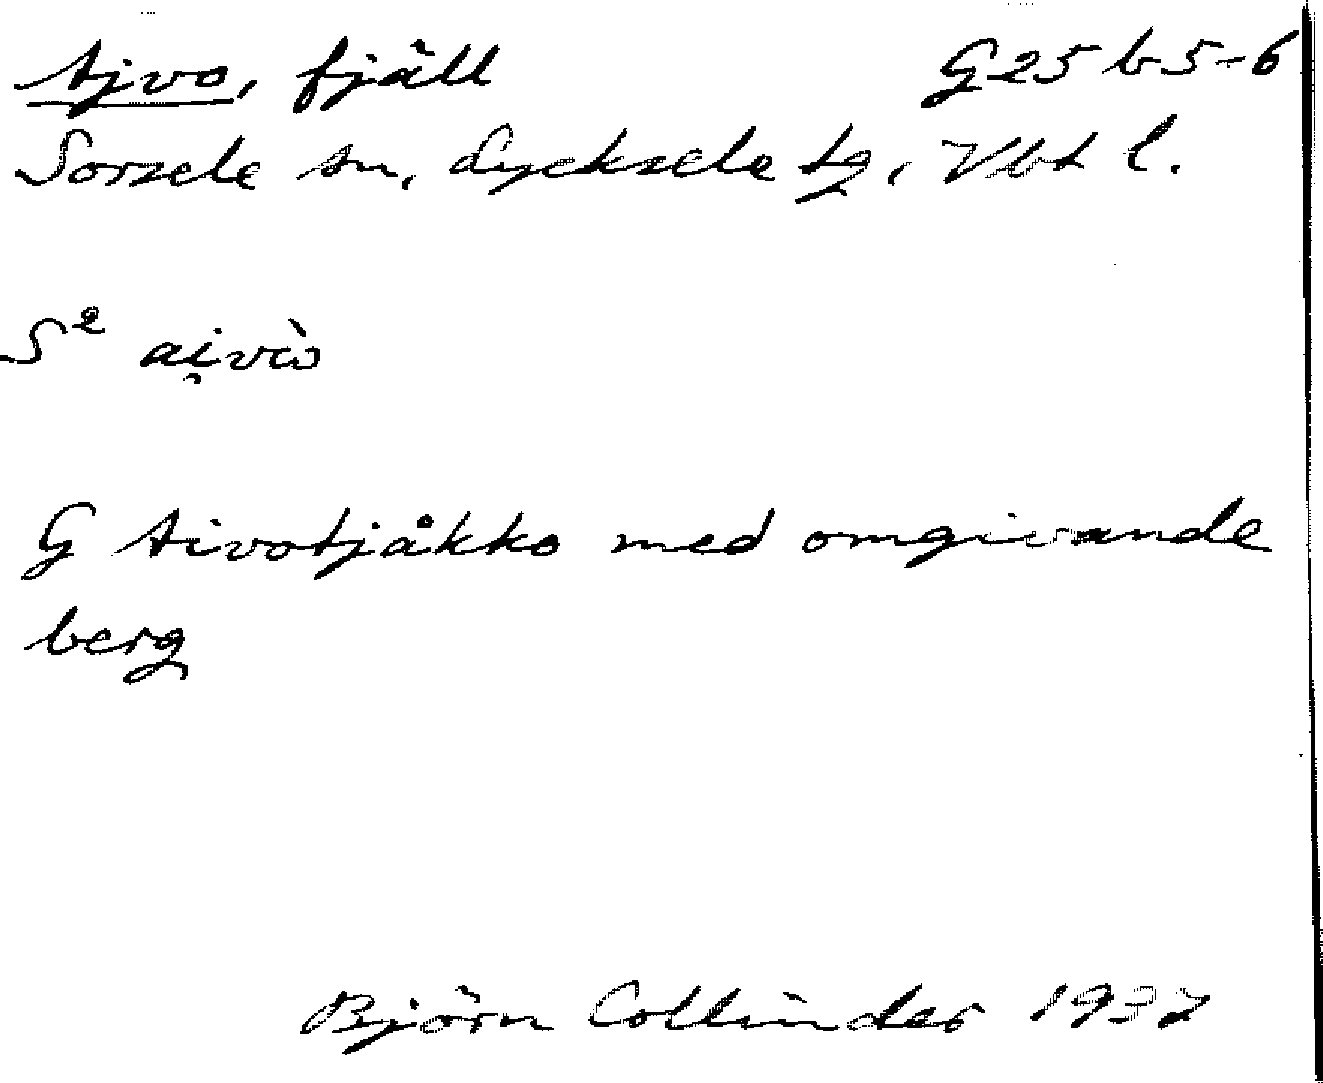 Ajvo, fjäll G25b5-6
Sorsele sn, Lycksele tg, Vbt l.
S² ai̯vò
G Aivotjåkko med omgivande
berg
Björn Collinder 1937